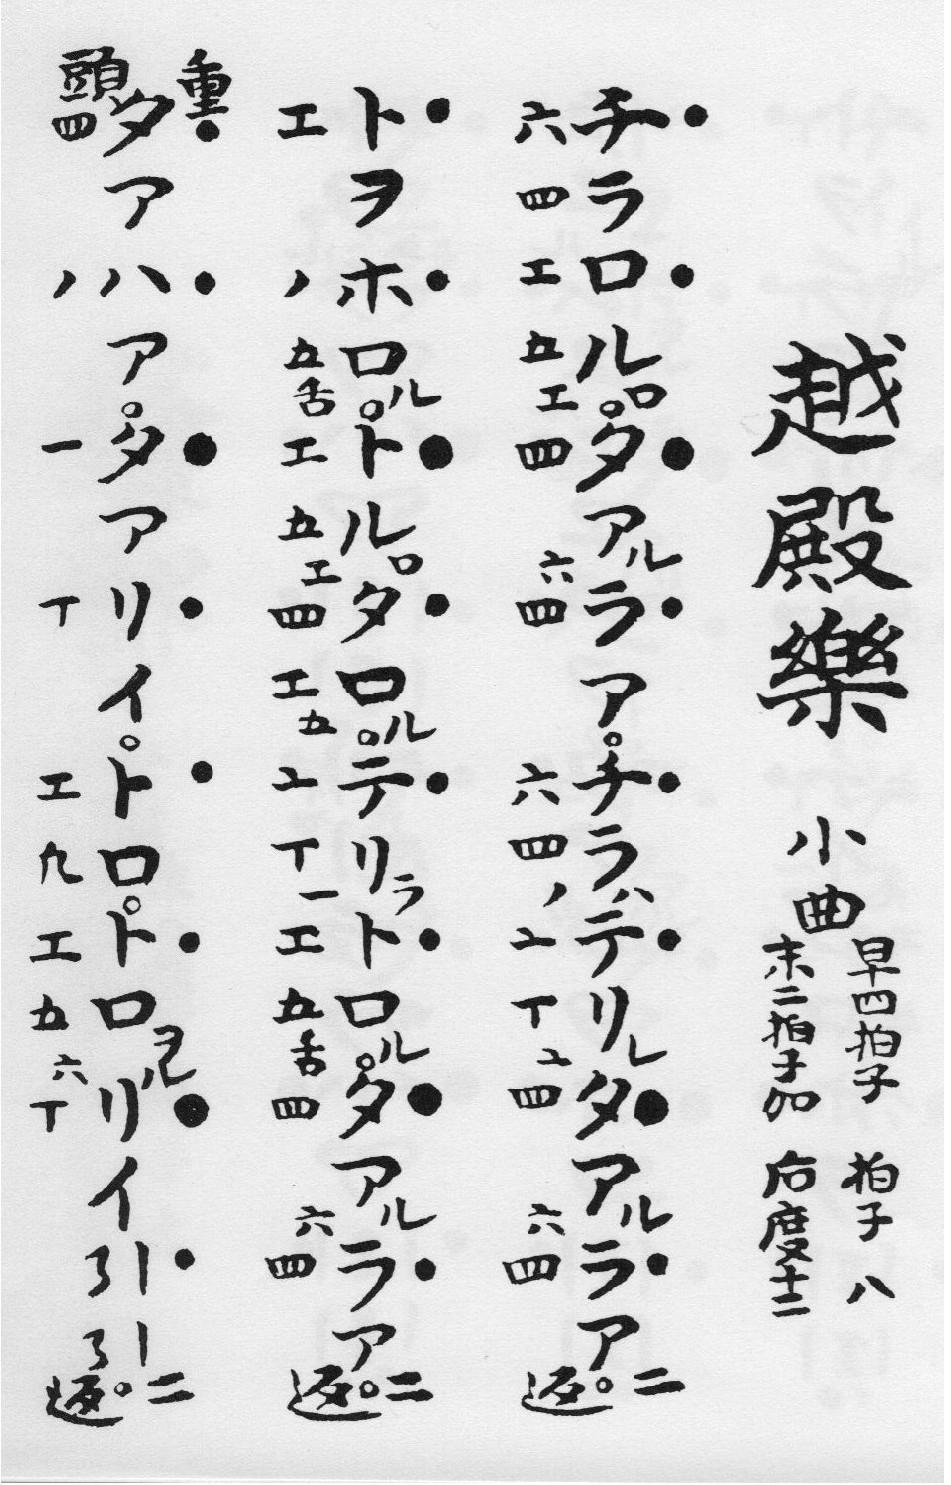 越殿樂 小曲 早四拍子 拍子 八
末二拍子加 后度十二
●チラ●ロルロ。●タアル●ラア。●チラハ●テリレ●タアル●ラア。二返
六四エ五エ四六四六四ノユ丁ユ四六四
●トヲ●ホロル。●トルロ●タロル。●テリラ●トロル。●タアル●ラア。二返
エノ五舌エ五エ四エ五ユ丁一エ五舌四六四
重頭
●タア●ハア。●タア●リイ。●トロ。●トロヲル●リイ●引引。二返
四ノ一丁エ凢エ五六丁